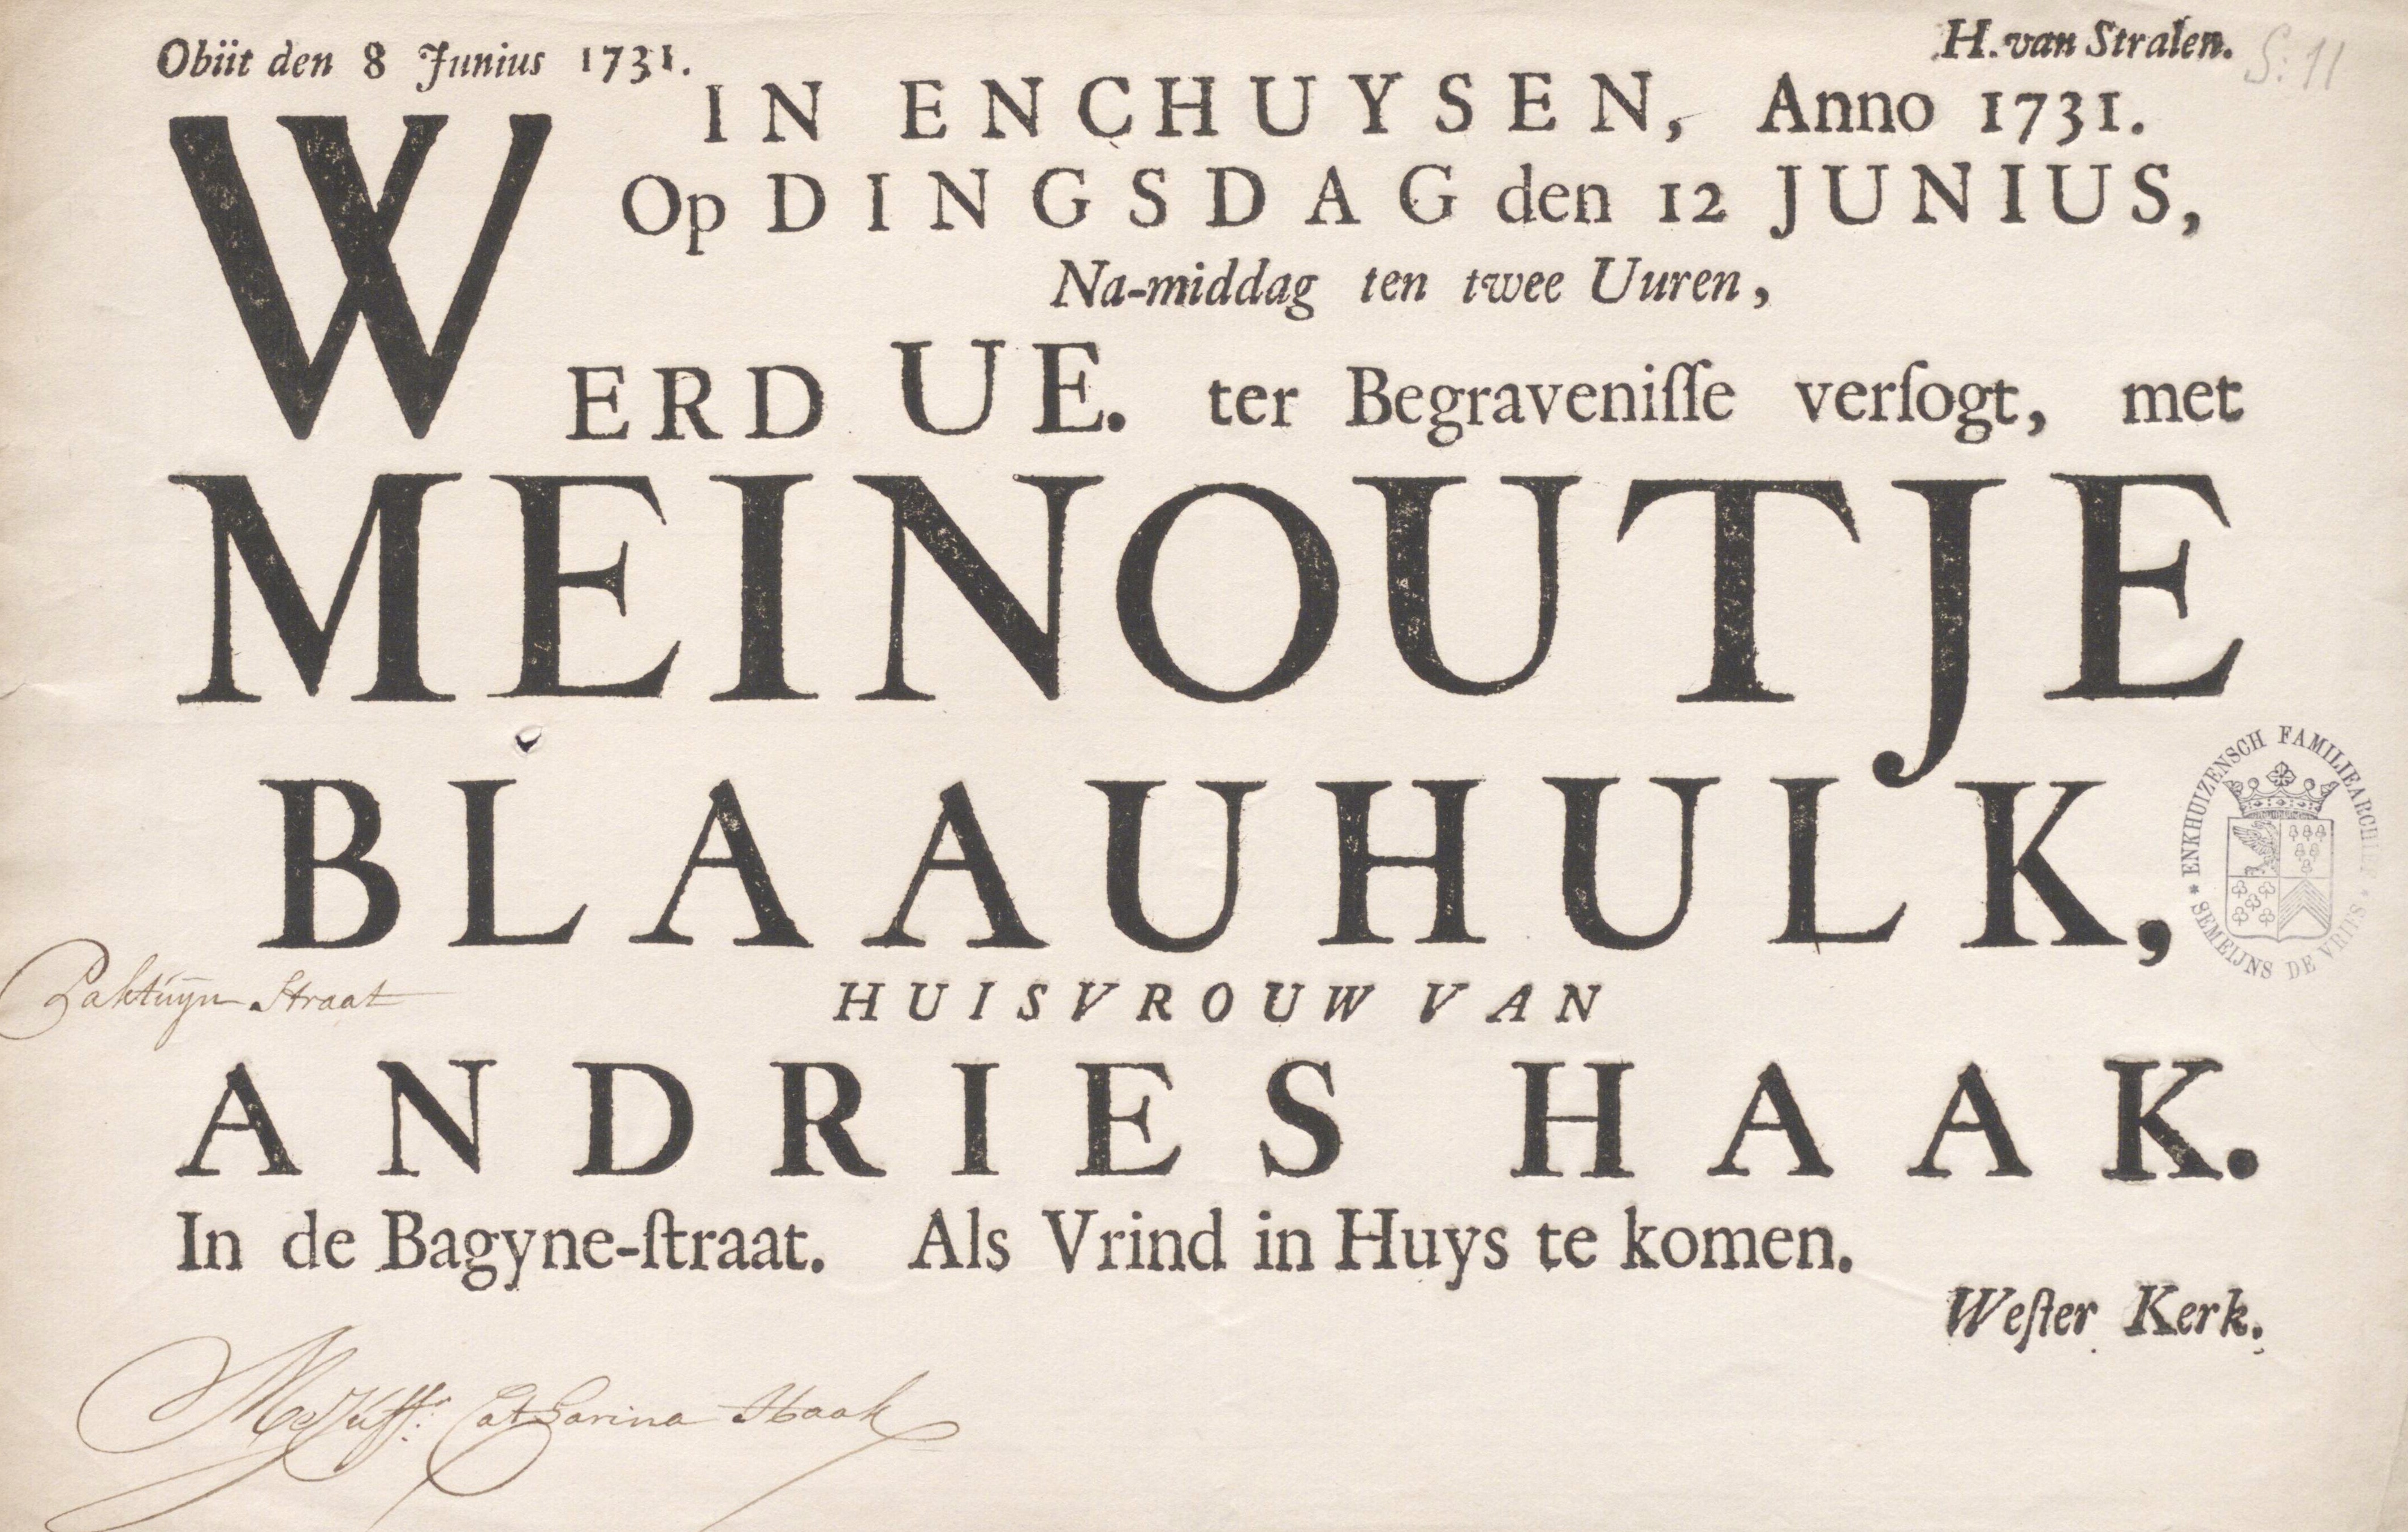 Obiit den 8 Junius 1731.
H. van Stralen.
S: 11
IN ENCHUYSEN, Anno 1731.
Op DINGSDAG den 12 JUNIUS,
Na-middag ten twee Uuren,
WERD UE. ter Begraveniſſe verſogt, met
MEINOUTJE
BLAAUHULK,
ENKHUIZENSCH FAMILIEARCHIEF * SEMEIJNS DE VRIES *
Paktuyn Straat
HUISVROUW VAN
ANDRIES HAAK.
In de Bagyne-ſtraat. Als Vrind in Huys te komen.
Weſter Kerk.
Mejuff: Catharina Haak